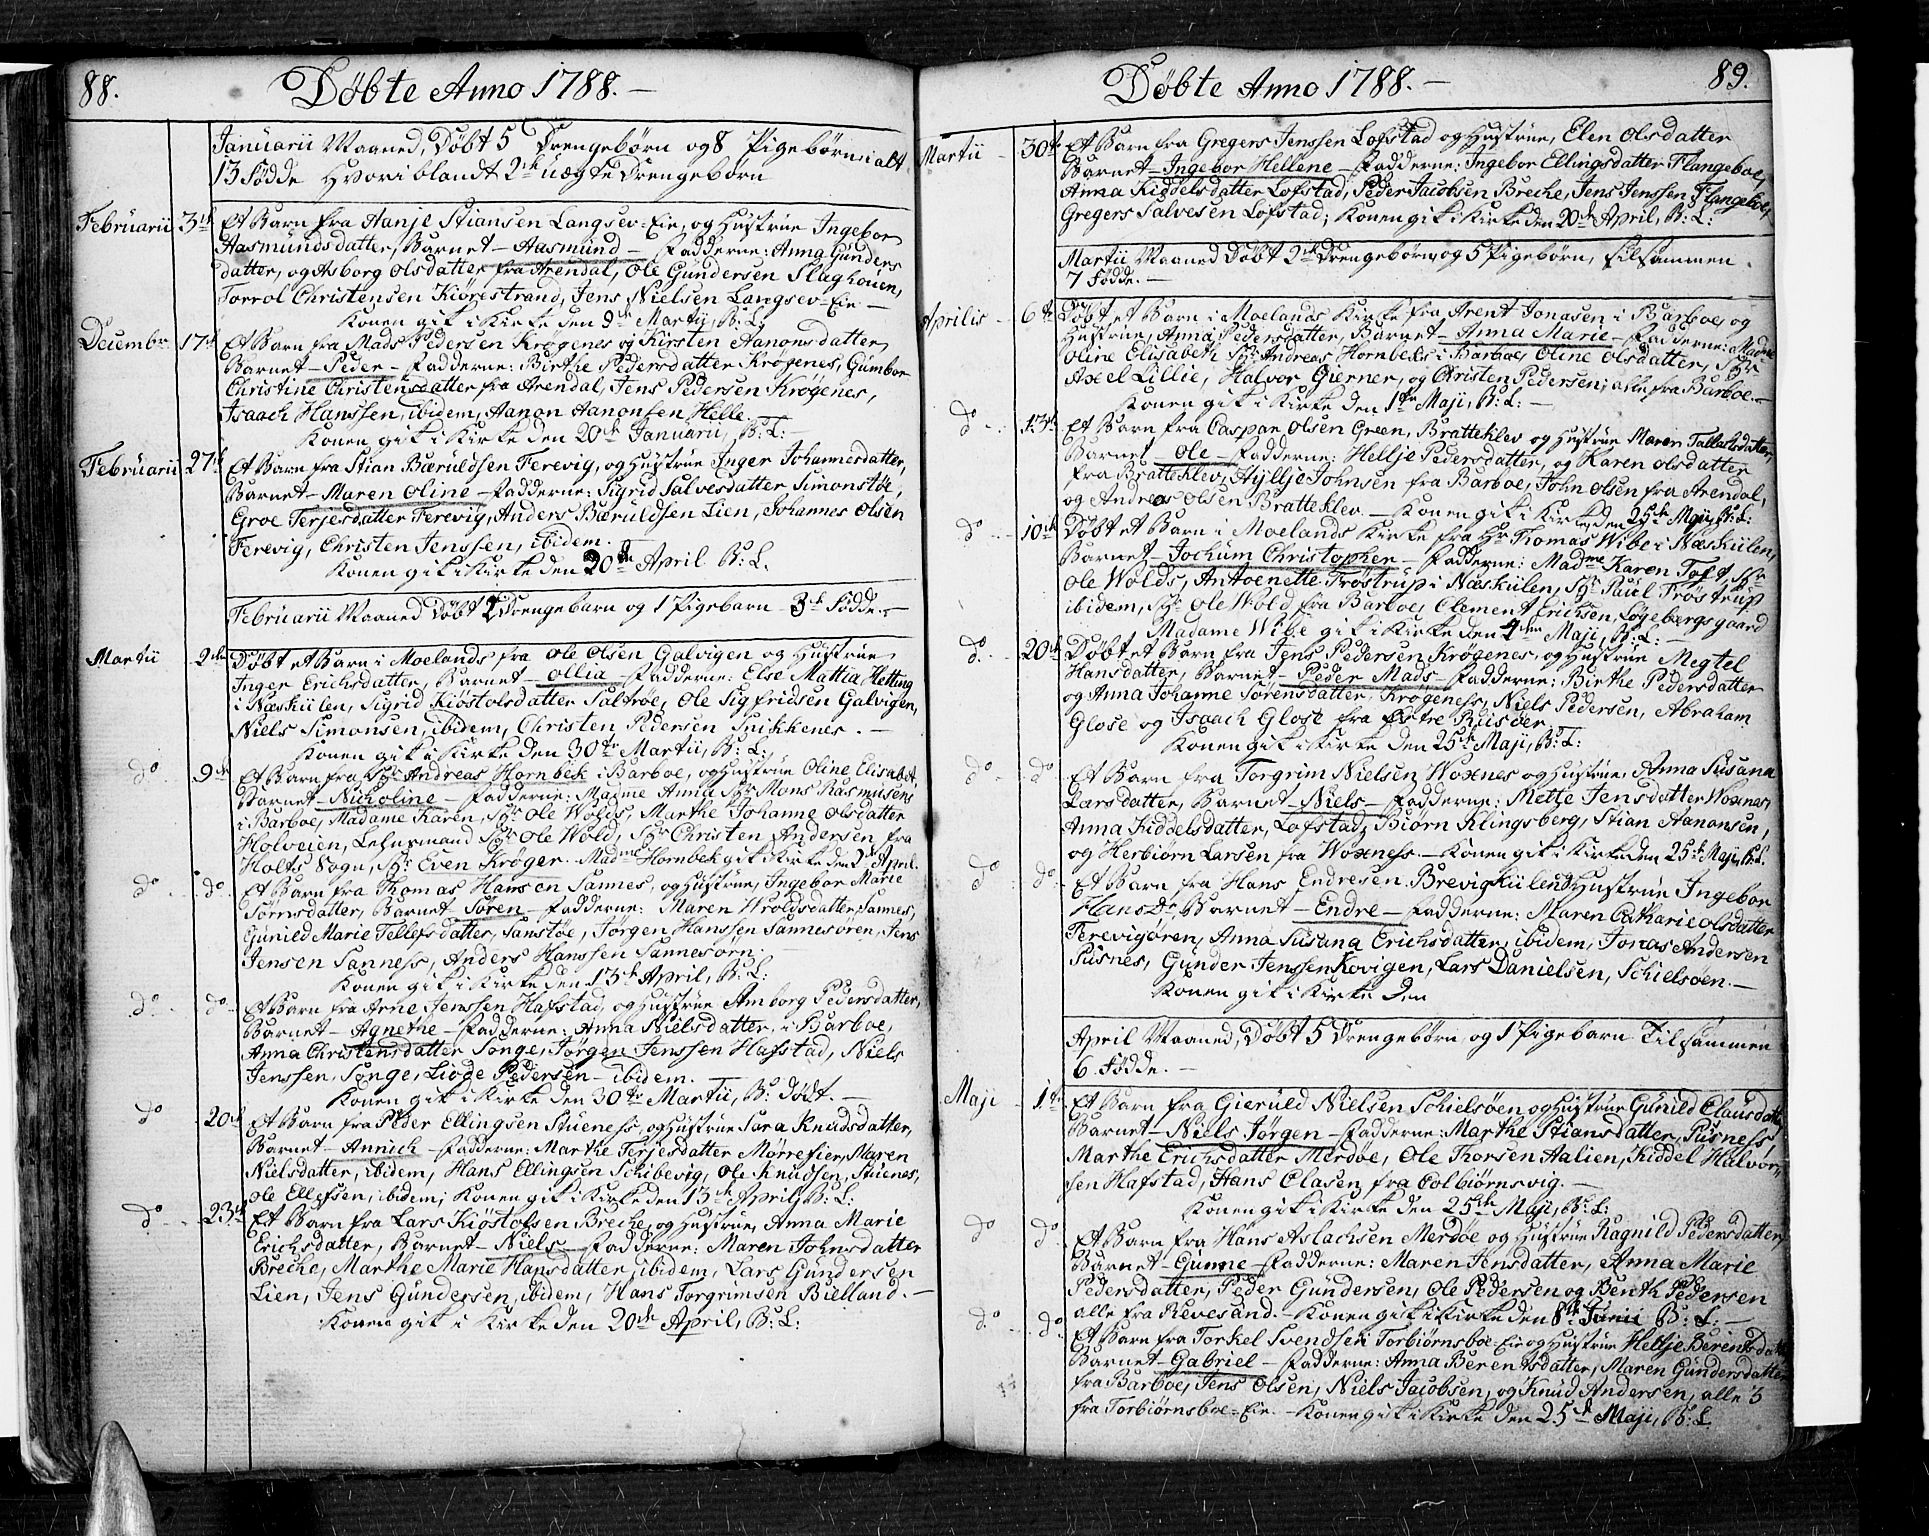 88.
Døbte Anno 1788.
Januarii Maaned, Døbt 5 Drengebørn og 8 Pigebørn i alt
13 Fødde Hvoriblandt 2de uægte Drengebørn
Februarii 3die Et Barn fra Aanje Stiansen Langsev-Eie, og Hustrue Ingebor
Aasmundsdatter, Barnet - Aasmund - Fadderne: Anna Gunders
datter, og Asborg Olsdatter fra Arendal, Ole Gundersen Slaghouen,
Torrol Christensen Kiørestrand, Jens Nielsen Langsev-Eie -
Konen gik i Kirke den 9de Martii, B: L:
Decembr. 17de Et Barn fra Mads Pedersen Krøgenes og Kirsten Aanonsdatter
Barnet - Peder - Fadderne: Birthe Pedersdatter Krøgenes, Gumbor
Christine Christensdatter fra Arendal, Jens Pedersen Krøgenes,
Isaach Hanssen, ibidem, Aanon Aanonsen Helle.
Konen gik i Kirke den 20de Januarii, B: L: -
Februarii 27de Et Barn fra Stian Bæruldsen Ferevig, og Hustrue Inger Johannesdatter,
Barnet - Maren Oline - Fadderne: Sigrid Salvesdatter Simonstøe,
Groe Terjesdatter Ferevig, Anders Bæruldsen Lien, Johannes Olsen
Ferevig, Christen Jenssen, ibidem.
Konen gik i Kirke den 20de April B: L.
Februarii Maaned Døbt 2 Drengebarn og 1 Pigebarn 3de Fødde. -
Martii 2den Døbt et Barn i Moelands fra Ole Olsen Galvigen og Hustrue
Inger Erichsdatter, Barnet - Ollia - Fadderne: Else Mattia Hetting
i Næskiilen, Sigrid Kiøstolsdatter Saltrøe, Ole Sigfridsen Galvigen,
Niels Simonsen, ibidem, Christen Pedersen Snikkenes. -
Konen gik i Kirke den 30te Martii, B: L:
do 9de Et Barn fra Hr Andreas Hornbek i Barboe, og Hustrue Oline Elisabet,
Barnet - Nicholine - Fadderne: Madme Anna Hr Mons Rasmusens
i Barboe, Madame Karen, Hr Ole Wolds, Marthe Johanne Olsdatter
Holveien, Lehnsmand Hr Ole Wold, Hr Christen Andersen, fra
Holts Sogn, Hr Even Krøger. Madme Hornbek gik i Kirke den 2de April.
do do Et Barn fra Thomas Hansen Sannes, og Hustrue, Ingebor Marie
Sørnsdatter, Barnet - Søren - Fadderne: Maren Wroldsdatter, Sannes,
Gunild Marie Tellefsdatter, Sanstøe, Jørgen Hanssen Sannesøren, Jens
Jensen Sanness, Anders Hanssen Sannesørn.
Konen gik i Kirke den 13de April, B: L:
do do Et Barn fra Arne Jenssen Hafstad, og Hustrue Amborg Pedersdatter,
Barnet - Agnethe - Fadderne: Anna Nielsdatter, i Barboe,
Anna Christensdatter Songe, Jørgen Jenssen Hafstad, Niels
Jenssen, Songe, Liøde Pedersen - ibidem.
Konen gik i Kirke den 30te Martii, B: Dødt. -
do 20de Et Barn fra Peder Ellingsen Stueness, og Hustrue Sara Knudsdatter,
Barnet - Annich - Fadderne: Marthe Terjesdatter Mørrefier, Maren
Nielsdatter, ibidem, Hans Ellingsen Schibevig, Ole Knudsen, Stuenes,
Ole Ellefsen, ibidem; Konen gik i Kirke den 13de April, B: L:
do 23de Et Barn fra Lars Kiøstolsen Breche, og Hustrue, Anna Marie
Erichsdatter, Barnet - Niels - Fadderne: Maren Johnsdatter
Breche, Marthe Marie Hansdatter, ibidem, Lars Gundersen
Lien, Jens Gundersen, ibidem, Hans Torgrimsen Bielland. -
Konen gik i Kirke den 20de April, B: L:
89.
Døbte Anno 1788. -
Martii 30te Et Barn fra Gregers Jenssen Løfstad og Hustrue, Elen Olsdatter
Barnet - Ingebor Hellene - Fadderne: Ingebor Ellingsdatter Flangeboe,
Anna Kiddelsdatter Løfstad, Peder Jacobsen Breche, Jens Jenssen Flangeboe,
Gregers Salvesen Løfstad; Konen gik i Kirke den 20de April, B: L:
Martii Maaned Døbt 2de Drengebørn og 5 Pigebørn, tilsammen
7 Fødde. -
Aprilis 6te Døbt et Barn i Moelands Kirke fra Arent Jonasen i Barboe, og
Hustrue, Anna Pedersdatter, Barnet - Anna Marie - Fadderne: Madme
Oline Elisabeth Hr Andreas Hornbeks i Barboe, Oline Olsdatter, Hr
Axel Lillie, Halvor Gierner, og Christen Pedersen; alle fra Barboe. -
Konen gik i Kirke den 1te Maji, B: L: -
do 13de Et Barn fra Caspar Olsen Green, Bratteklev og Hustrue Maren Tallaksdatter,
Barnet - Ole - Fadderne: Hellje Pedersdatter, og Karen Olsdatter
fra Bratteklev, Hyllje Johnsen fra Barboe, John Olsen fra Arendal,
og Andreas Olsen Bratteklev - Konen gik i Kirke den 25de Maji, B: L:
do 10de Døbt et Barn i Moelands Kirke fra Hr Thomas Wibe i Næskiilen,
Barnet - Jochum Christopher - Fadderne: Madme Karen Toft, Hr
Ole Wolds, Antoenette Frøstrup i Næskiilen, Hr Paul Frøstrup
ibidem, Hr Ole Wold fra Barboe, Clement Erichsen, Løgebergsgaard
Madame Wibe gik i Kirke den 4den Maji, B: L: -
do 20de Døbt et Barn fra Jens Pedersen Krøgenes, og Hustrue Megtel
Hansdatter, Barnet - Peder Mads - Fadderne: Birthe Pedersdatter
og Anna Johanne Sørensdatter, Krøgeness, Niels Pedersen, Abraham
Glose og Isaach Glose fra Østre Riisøer.
Konen gik i Kirke den 25de Maji, B: L:
do do Et Barn fra Torgrim Nielsen Woxnes og Hustrue, Anna Susana
Larsdatter, Barnet - Niels - Fadderne: Mette Jensdatter Woxnes,
Anna Kiddelsdatter, Løfstad, Biørn Klingsberg, Stian Aanonsen,
og Herbiørn Larsen fra Woxness. - Konen gik i Kirke den 25de Maji, B: L.
do do Et Barn fra Hans Endresen Brevigkiilen og Hustrue Ingebor
HansDr, Barnet - Endre - Fadderne: Maren Catharie Olsdatter
Ferevigøren, Anna Susana Erichsdatter, ibidem, Jonas Andersen
Pusnes, Gunder Jenssen Kovigen, Lars Danielsen, Schielsøen. -
Konen gik i Kirke den
April Maaned, Døbt 5 Drengebørn, og 1 Pigebarn Tilsammen
6. Fødde. -
Maji 1te Et Barn fra Gieruld Nielsen Schielsøen og Hustrue Gunild Clausdatter
Barnet - Niels Jørgen - Fadderne: Marthe Stiansdatter, Pusness
Marthe Erichsdatter Merdøe, Ole Thorsen Aalien, Kiddel Halvor-
sen Hafstad, Hans Clasen fra Colbiørnsvig. -
Konen gik i Kirke den 25de Maji, B: L:
do do Et Barn fra Hans Aslachsen Merdøe og Hustrue Ragnild Pedersdatter,
Barnet - Gunne - Fadderne: Maren Jensdatter, Anna Marie
Pedersdatter, Peder Gundersen, Ole Pedersen og Benth Pedersen
alle fra Revesand. - Konen gik i Kirke den 8de Junii B: L: -
do do Et Barn fra Torkel Svendsen Torbiørnsboe-Eie og Hustrue Hellje Berentsdatter
Barnet - Gabriel - Fadderne: Anna Berentsdatter, Maren Gundersdatter
fra Barboe, Jens Olsen, Niels Jacobsen, og Knud Andersen, alle 3
fra Torbiørnsboe-Eie. - Konen gik i Kirke den 25de Maji, B: L